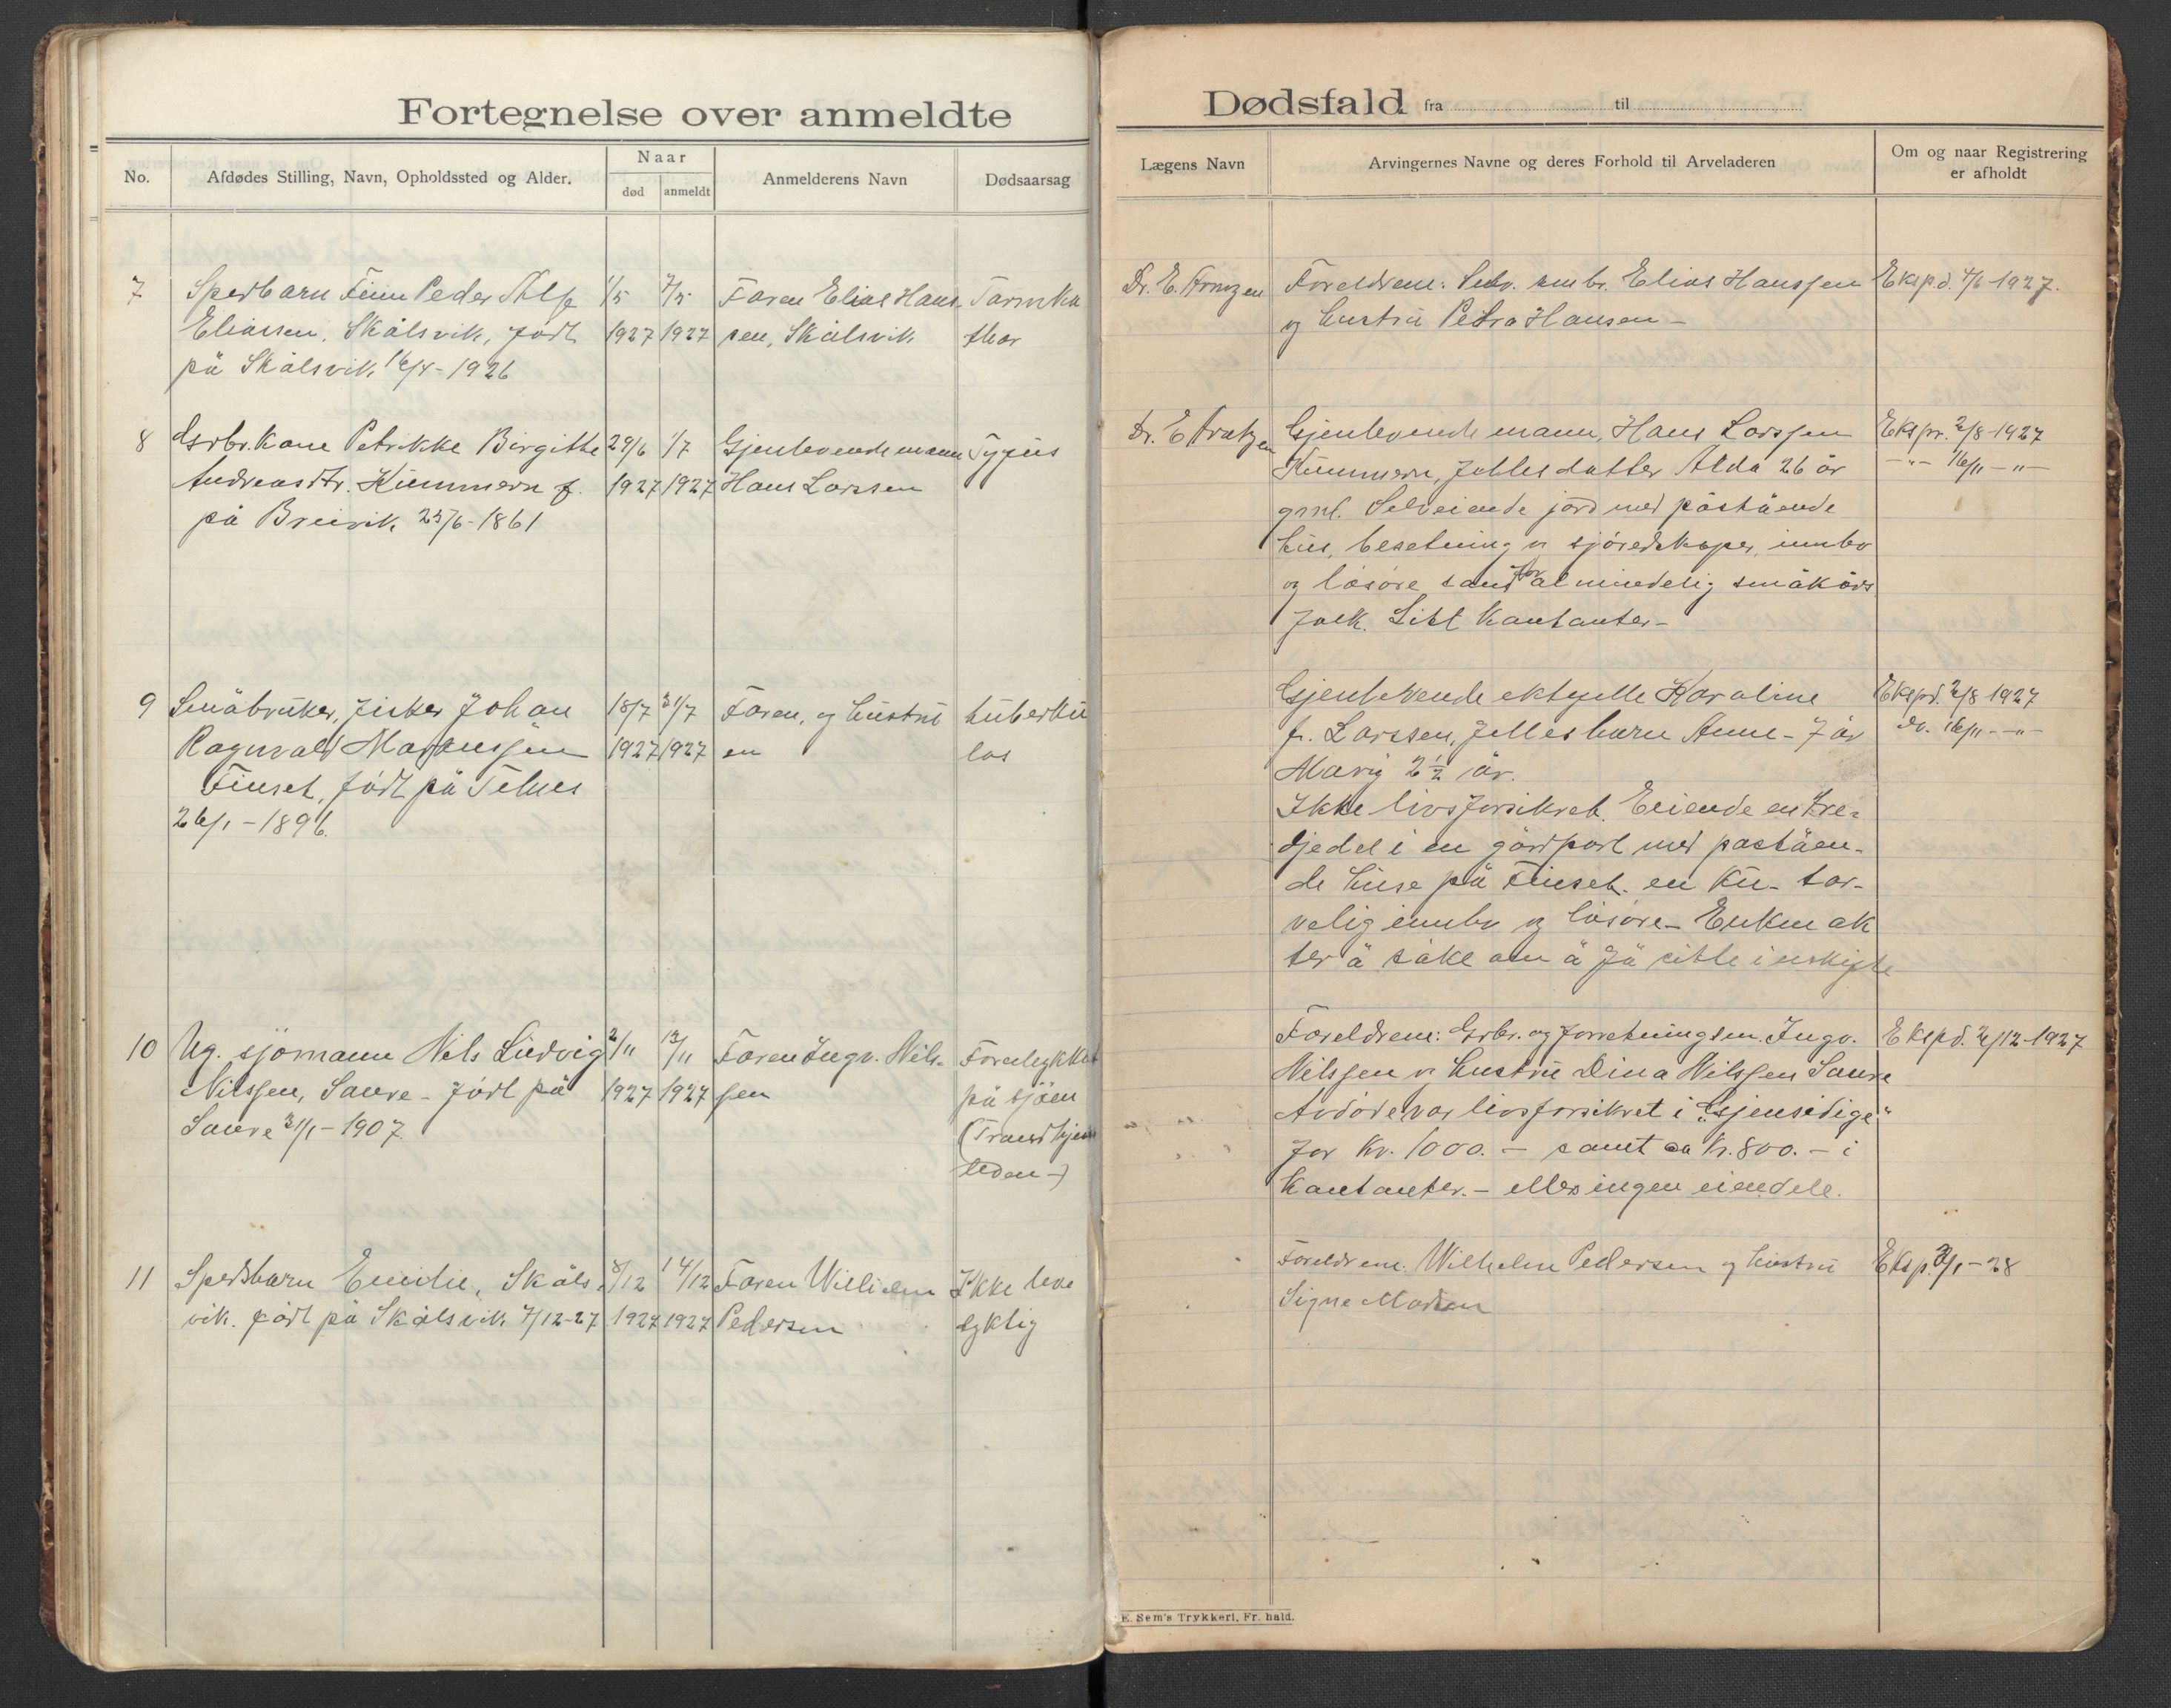 Fortegnelse over anmeldte
No.
Afdødes Stilling, Navn, Opholdssted og Alder.
Naar
død
anmeldt
Anmelderens Navn
Dødsaarsag
7
Spedbarn Finn Peder Alf
Eliassen, Skålsvik, født
på Skålsvik 16/4-1926
1/5
1927
7/5
1927
Faren Elias Hans-
sen, Skålsvik
Tarmka
thar
8
Gsrbr. Kone Petrikke Birgitte
Andreasdtr. Kummern f.
på Breivik 25/6-1861
29/6
1927
1/7
1927
Gjenlevende mann
Hans Larssen
Tyfus
9
Småbruker, fisker Johan
Ragnvald Magnussen
Finset, født på Telnes
26/1-1896.
18/7
1927
21/7
1927
Faren, og hustru
en
tuberku
los
10
Ug. sjømann Nils Ludvig
Nilssen, Saure - født på
Saure 21/1-1907.
2/11
1927
13/11
1927
Faren Ingv. Nils-
sen
Forulykket
på sjøen
(Trondhjem
leden-)
11
Spedbarn Emilie, Skåls-
vik. født på Skålsvik 7/12-27
8/12
1927
14/12
1927
Faren Wilhelm
Pedersen
Ikke leve
dyktig
Dødsfald fra til
Lægens Navn
Arvingernes Navne og deres Forhold til Arveladeren
Om og naar Registrering
er afholdt
Dr. E. Arntzen
Foreldrene: Elias Hanssen
og hustru Petra Hansen -
Ekspd. 7/6-1927.
Dr. E Arntzen
Gjenlevende mann, Hans Larssen
Kummern, felles datter Alda 26 år
gml. Selveiende jord med påstående
hus, besetning og sjøredskaper, innbo
og løsøre som for almindelig småkårs
folk. Litt kontanter -
Ekspr. 2/8-1927
-"- 16/11 -"-
Gjenlevende ektefelle Karoline
f. Larssen, felles barn Anne - 7 år
2½ år.
Ikke livsforsikret. Eiende en tre-
djedel i en gårdpart med påståen-
de huse på Finset. en ku - tar-
velig innbo og løsøre - Enken ak
ter å søke om å få sitte i uskifte
Ekspd. 2/8 1927
do. 16/11 -"-
Foreldrene: Grbr. og forretningsm. Ingv.
Nilssen og hustru Dina Nilssen Saure
Avdøde var livsforsikret i "Gjensidige"
for kr. 1000. - samt ca kr. 800. - i
kontanter. - ellers ingen eiendele.
Ekspd. 2/12-1927
Foreldrene: Wilhelm Pedersen og hustru
Signe Madsen
Eksp. 3/1-28
E. Sem's Trykkeri, Fr. hald.